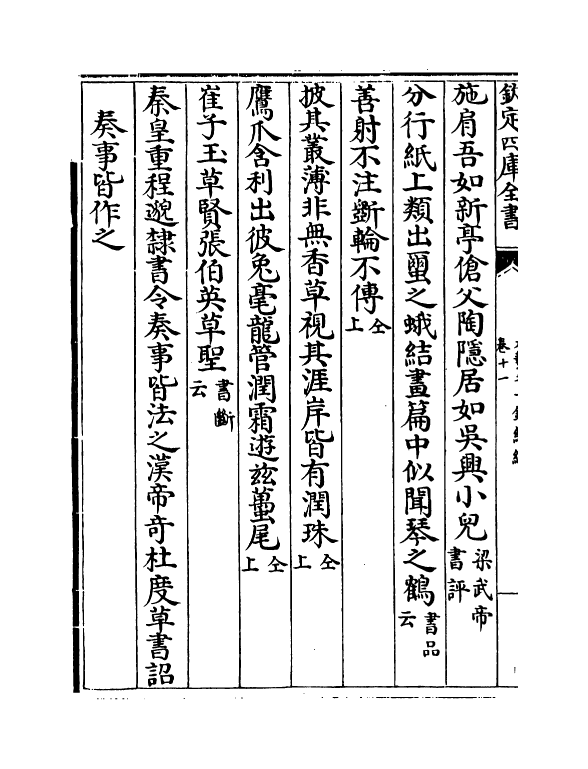 欽定四庫全書
卷十一
施肩吾如新亭傖父陶隱居如吳興小兒梁武帝書評
分行紙上類出璽之蛾結畫篇中似聞琴之鶴書品云
善射不注斲輪不傳仝上
披其叢薄非無香草視其涯岸皆有潤珠仝上
鷹爪含利出彼兔毫龍管潤霜遊玆蠆尾仝上
崔子玉草賢張伯英草聖書斷云
秦皇重程邈隸書令奏事皆法之漢帝奇杜度草書詔
奏事皆作之